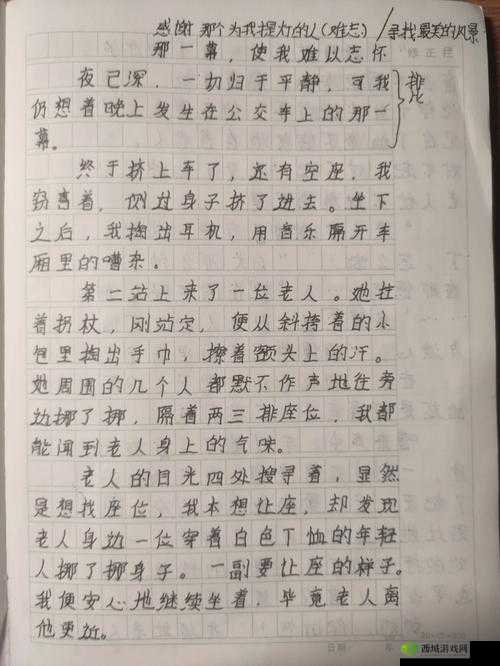 感谢那个为我提灯的人(难忘)/寻找最美的风景
那一幕，使我难以忘怀
修正栏
夜已深，一切归于平静，可我
排比
仍想着晚上发生在公交车上的那一
幕。
终于挤上车了，还有空座，我
窃喜着，侧过身子挤了进去。坐下
之后，我掏出耳机，用音乐隔开车
厢里的嘈杂。
第二站上来了一位老人。她拄
着拐杖，刚站定，便从斜挎着的小
包里掏出手巾，擦着额头上的汗。
她周围的几个人都默不作声地往旁
边挪了挪，隔着两三排座位，我都
能闻到老人身上的气味。
老人的目光四处搜寻着，显然
是想找座位，我本想让座，却发现
老人身边一位穿着白色T恤的年轻
人挪了挪身子。一副要让座的样子。
我便安心地继续坐着，毕竟老人离
他更近。
日期
西域游戏网